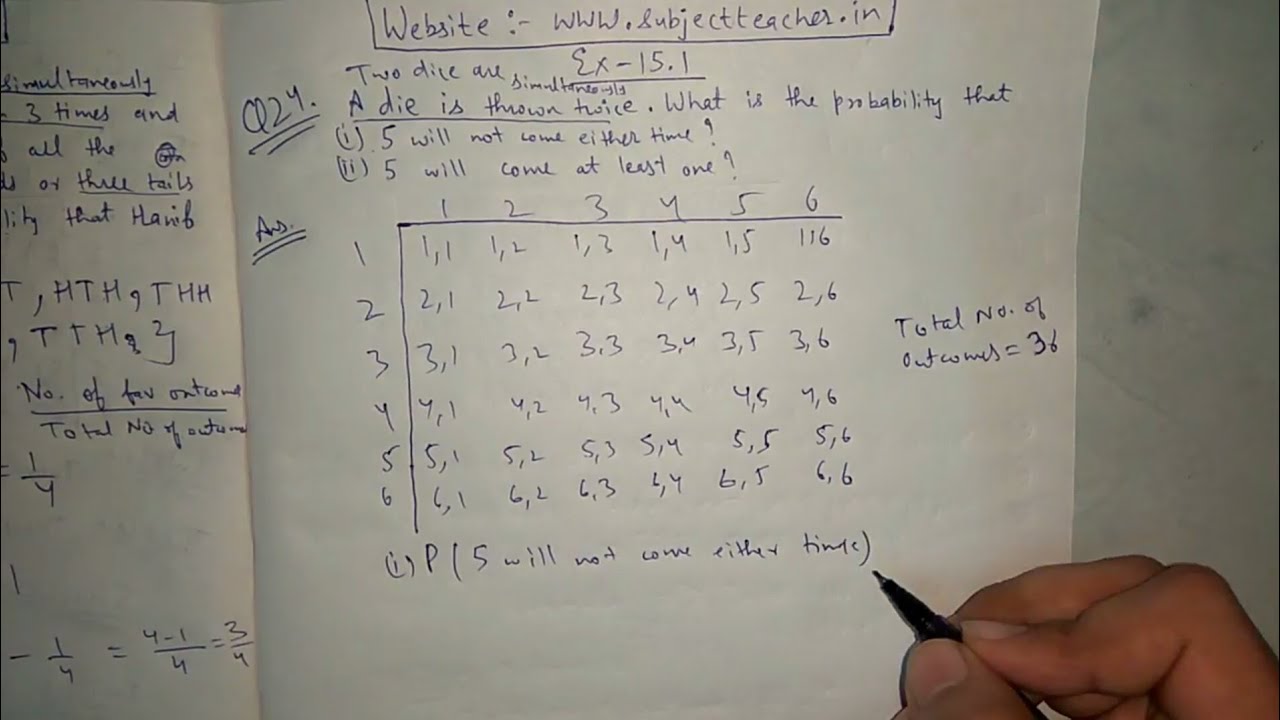 simultaneously
3 times and
all the
or three tails
lity that Hanif
T, HTH, THH
, TTH, }
No. of fav outcome
Total No of outcome
= 1/4
1
- 1/4 = 4-1/4 = 3/4
Website :- www.subjectteacher.in
Ex-15.1
Two dice are simultaneously
Q24. A die is thrown twice. What is the probability that
(i) 5 will not come either time?
(ii) 5 will come at least one?
Ans.
1 2 3 4 5 6
1 1,1 1,2 1,3 1,4 1,5 1,6
2 2,1 2,2 2,3 2,4 2,5 2,6
3 3,1 3,2 3,3 3,4 3,5 3,6
4 4,1 4,2 4,3 4,4 4,5 4,6
5 5,1 5,2 5,3 5,4 5,5 5,6
6 6,1 6,2 6,3 6,4 6,5 6,6
Total No. of
outcomes = 36
(i) P (5 will not come either time)